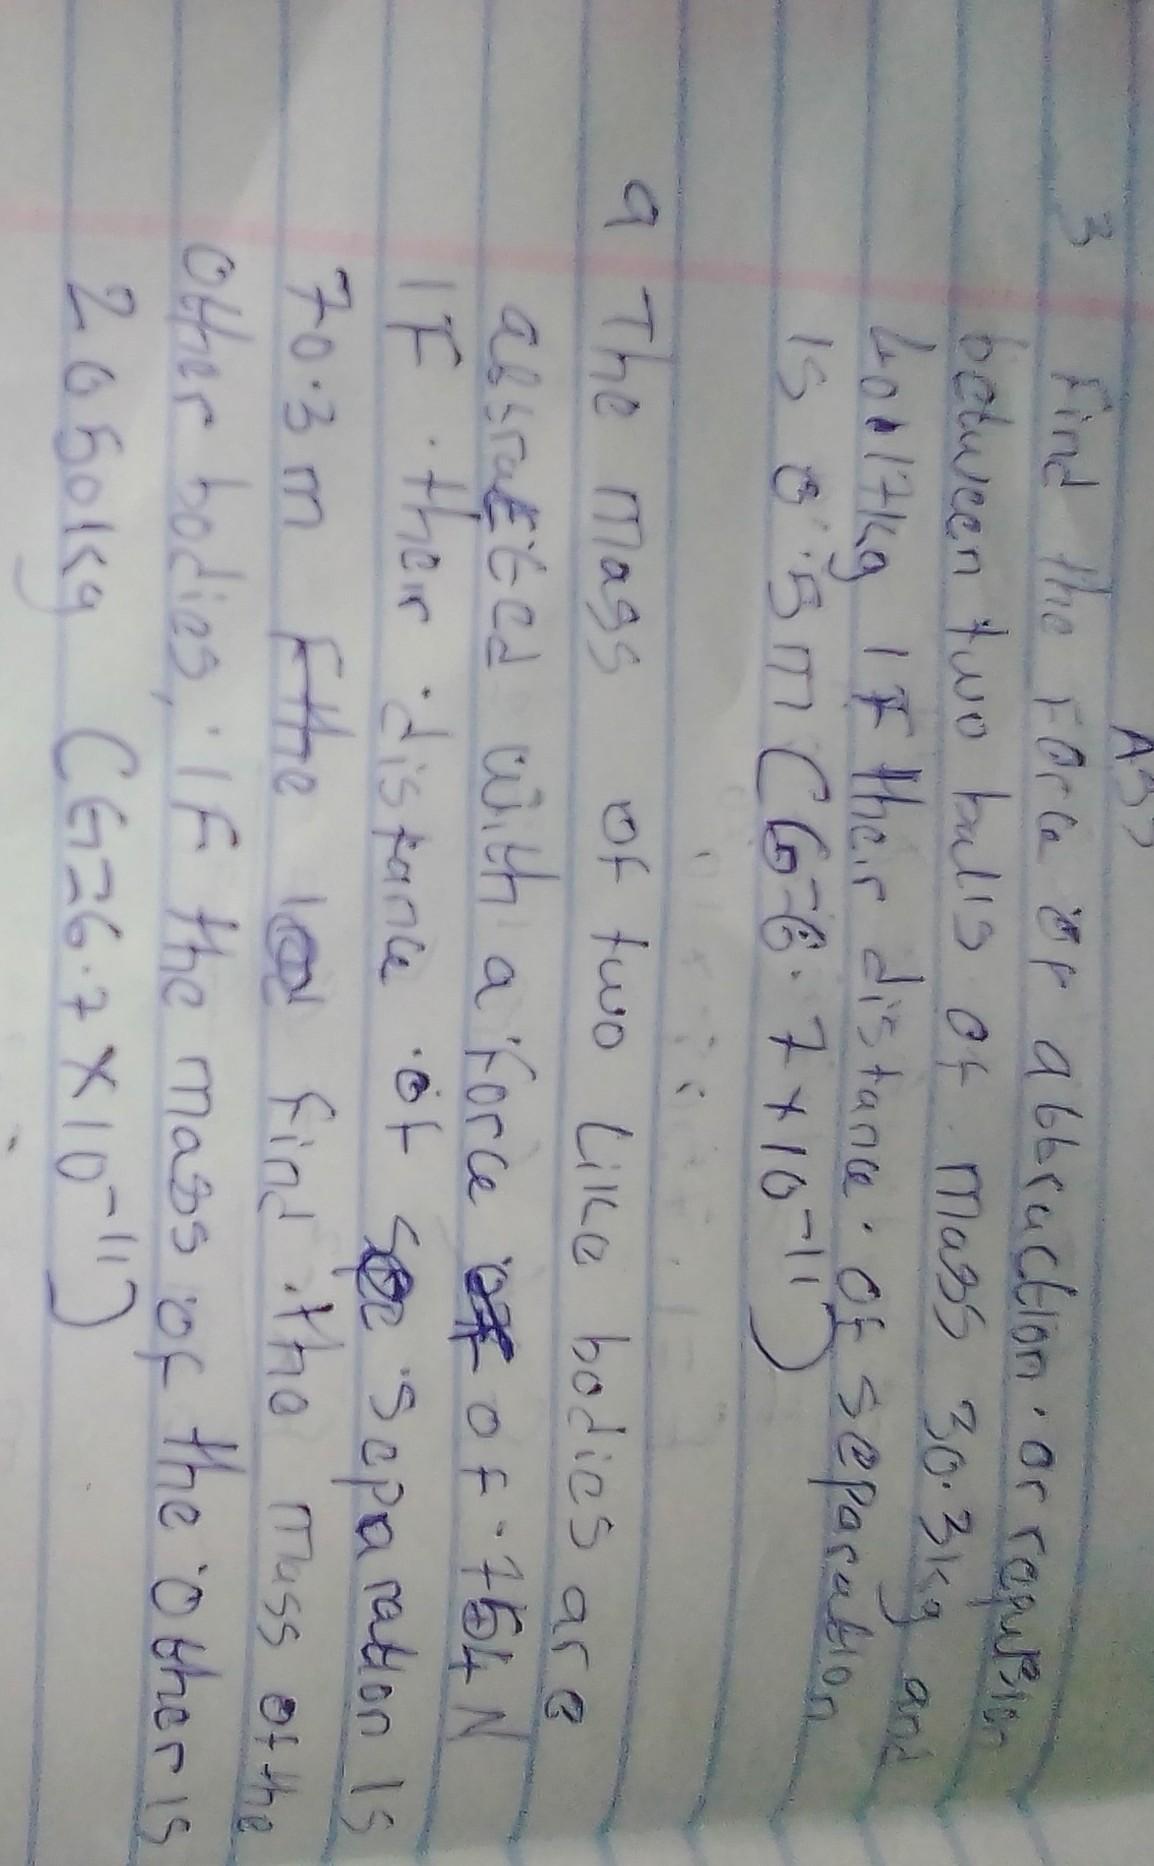 Ass
3 Find the Force or abbraction. or repulsion
between two balls of mass 30.3kg and
40.17kg IF their distance. of separation
Is 0.5m (G=6.7×10-11)
9 The mass of two Like bodies are
with a Force of. N
IF. their distance of separation Is
70.3m find. the mass of the
Other bodies,. IF the mass of the other is
20501kg (G=6.7×10-11)